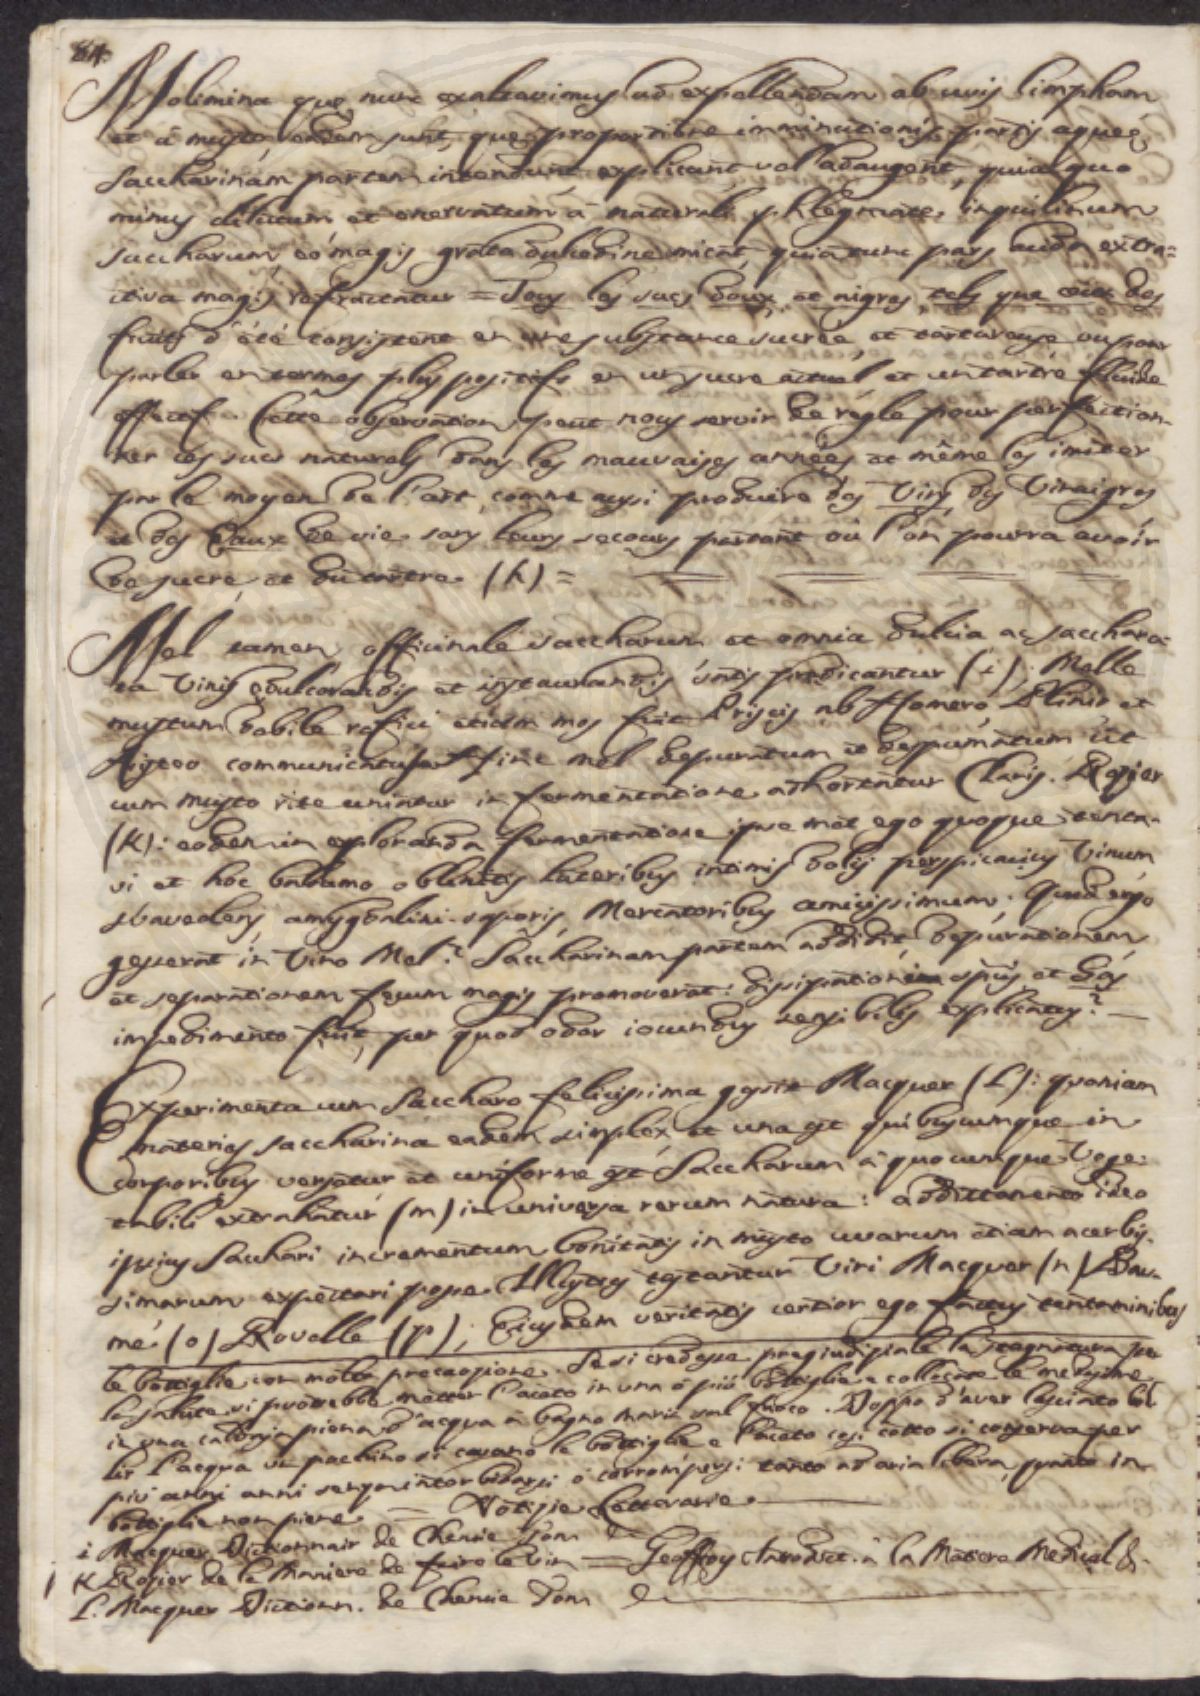 84.
Molimina quę nunc exaltavimus ad expellendam ab uvis limpham
et à musto, eadem sunt, quę proportione imminutionis partis aqueę
Saccharinam partem intendunt explicant vel adaugent, quia quo
minus dilutum, et enervatum à naturali phlegmate inquilinum
saccharum, eo magis grata dulcedine micat, quia tunc pars extra=
ctiva magis = Tous les sucs doux, et aigres, tels que ceux des
fruits d'été consistent en une substance sucrée, et tartareuse ou pour
parler en termes plus positifs en un sucre actuel, et un tartre fluide
effectif. Cette observation peut nous servir de régle pour perfection-
ner ces sucs naturels dans les mauvaises années et même les imiter
par le moyen de l'art, comme aussi produire des Vins, des Vinaigres
et des Eaux de vie sans leurs secours partout où l'on pourra avoir
de sucre, et du tartre. (h) =
Mel tamen officinale saccharum et omnia dulcia ac sacchara-
ta Vinis edulcorandis et instaurandis prędicantur (i); Melle
mustum debile refici etiam mos fuit Priscis ab Homero, Plinio et
communicatus mel depuratum et despumatum ut
cum musto rite uniatur in fermentatione adhortantur Claris. Rozier
(K): eodem in exploranda fermentatione ipse met ego quoque tenta-
vi et hoc balsamo oblinitis lateribus intimis dolij perspicacius Vinum
suaveolens, amygdalini saporis, Mercatoribus amicissimum. Quid ergo
gesserat in Vino Mel? Saccharinam partem addidit, depurationem
et separationem fecum magis promoverat: dissipationi spũs et Gas
impedimento fuit, per quod odor iocundus sensibilis explicatus? —
Experimenta cum Saccharo felicissima gessit Macquer (L): quoniam
materies saccharina eadem simplex, et una est quibuscumque in
corporibus versatur et uniforme est Saccharum à quocumque Vege-
tabili extrahatur (m) in universa rerum natura: additamento ideo
ipsius Sacchari incrementum bonitatis in musto uvarum etiam acerbis-
simarum expectari posse Illustres testantur Viri Macquer (n) Bau-
mé (o) Rouelle (p); Eiusdem veritatis certior ego factus tentaminibus
le bottiglie con molta precauzione. Se si credesse pregiudiziale la stagnatura per
la salute si potrebbe metter l'aceto in una o più bottiglie e collocare le medesime
in una caldaja piena d'acqua à bagno maria sul fuoco. Doppo d'aver lasciato bol-
lir l'acqua un pochino si cavano le bottiglie e l'aceto così cotto si conserva per
più anni senza intorbidarsi o corrompersi: tanto ad aria libera, quanto in
bottiglie non piene. = Notizie Letterarie. —
i Macquer Dictionnair de Chemie Tom
K Rozier de la Maniere de faire le Vin = Geoffroy Introduct. à la Matiere Medical &.
L. Macquer Dictionn. de Chemie Tom